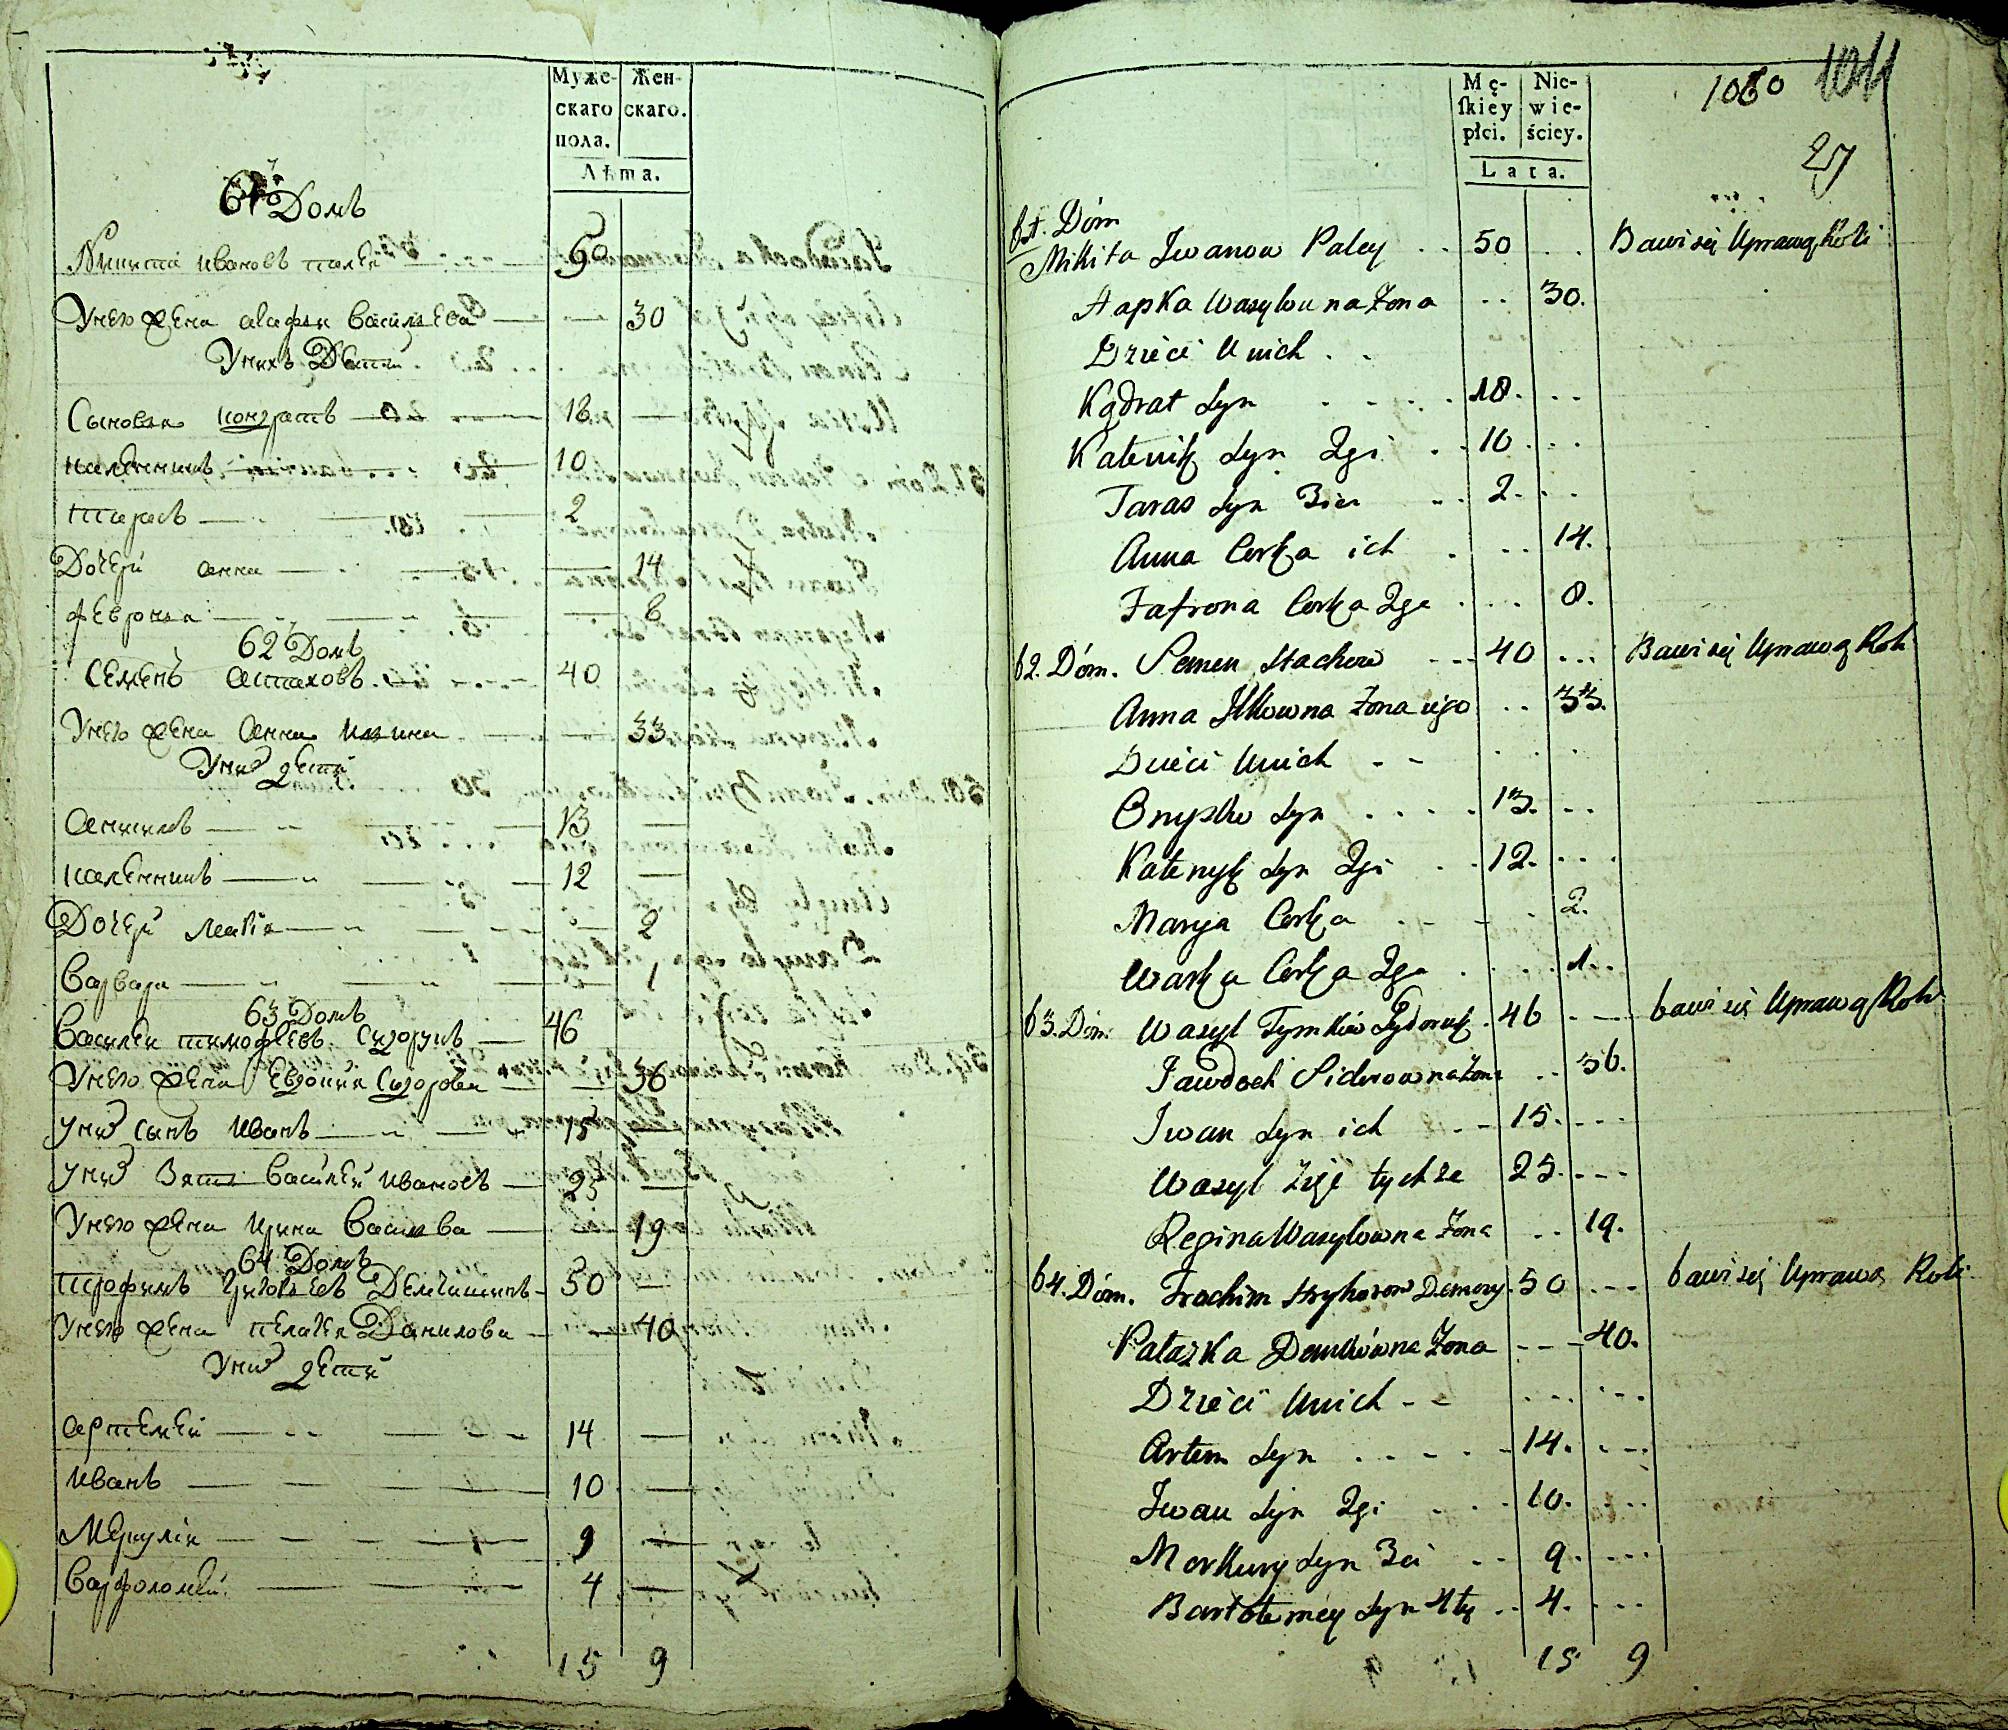 Муже- Жен-
скаго скаго.
пола.
Лѣта.
61 Домъ
Никита Ивановъ Палей 50
Унего жена агафия Васильева 30
Унихъ Дети
Сыновья кондратъ 18
каленникъ 10
тарасъ 2
Дочери анна 14
февронья 8
62 Домъ
Семенъ астаховъ 40
Унего жена анна ильина 33
Уних дети
аникимъ 13
каленникъ 12
Дочери марія 2
Варвара 1
63 Домъ
Василей тимофеевъ Сидорукъ 46
Унего жена Евдокия Сидорова 36
уних сынъ иванъ 15
уних зять василей ивановъ 25
Унего жена ирина Васильва 19
64 Домъ
трофимъ григорьевъ 50
Унего жена пелагея Данилова 40
Уних дети
артемей 14
иванъ 10
Меркулий 9
Варфоломей 4
15 9
Mę- Nie-
ſkiey wie-
płci. ściey.
Lata.
1060 1011
27
61. Dóm
Mikita Iwanow Paley 50 Bawi się Uprawą Roli
Hapka Wasylowna Żona 30.
Dzieci U nich
Kądrat Syn 18.
Kalenik Syn 2gi 10
Taras Syn 3ci 2.
Anna Corka ich 14.
Jafrona Corka 2ga 8.
62. Dóm. Semen Stachow 40 Bawi się Uprawą Roli
Anna Ilkowna Żona iego 33.
Dzieci U nich
Onysko Syn 13.
Kalenyk Syn 2gi 12.
Marya Corka 2.
Warka Corka 2ga 1.
63. Dóm. Wasyl Tymków Sydoruk 46 bawi się Uprawą Roli
Jawdoch Siderowna Żona 36.
Iwan Syn ich 15.
Wasyl Zięć tychże 25.
Regina Wasylowna Żona 19.
64. Dóm. Trochim Hryhorow 50 bawi się Uprawą Roli
Palazka Demkówna Żona 40.
Dzieci U nich
Artem Syn 14.
Iwan Syn 2gi 10.
Merkury Syn 3ci 9.
Bartolemey Syn 4ty 4.
15 9